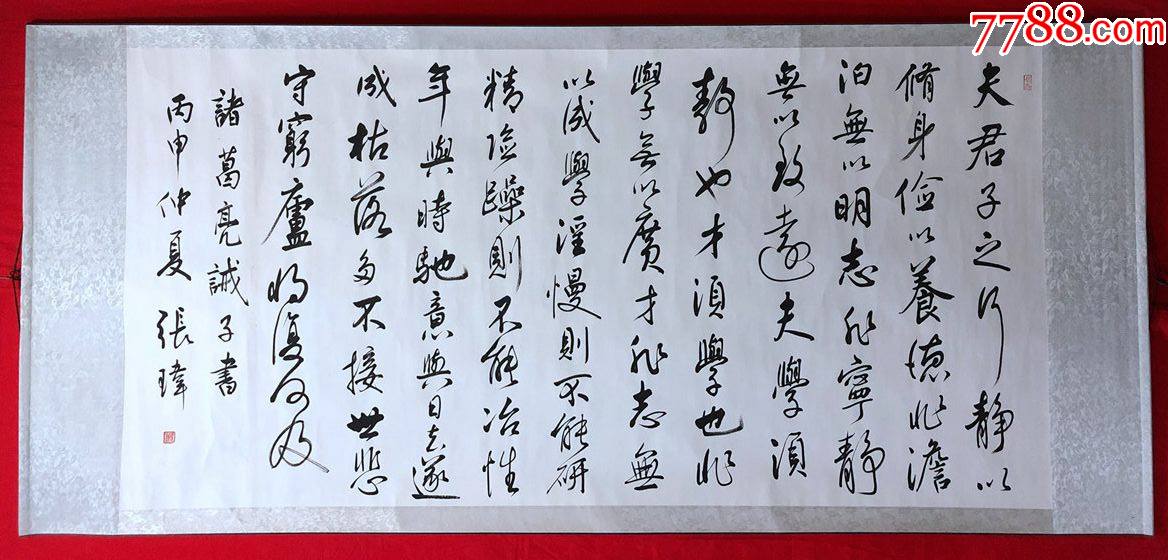 7788.com
夫君子之行静以
脩身儉以養德非澹
泊無以明志非寧静
無以致遠夫學須
静也才須學也非
學無以廣才非志無
以成學淫慢則不能研
精險躁則不能冶性
年與時馳意與日去遂
成枯落多不接世悲
守窮廬將復何及
諸葛亮誡子書
丙申仲夏 張瑋